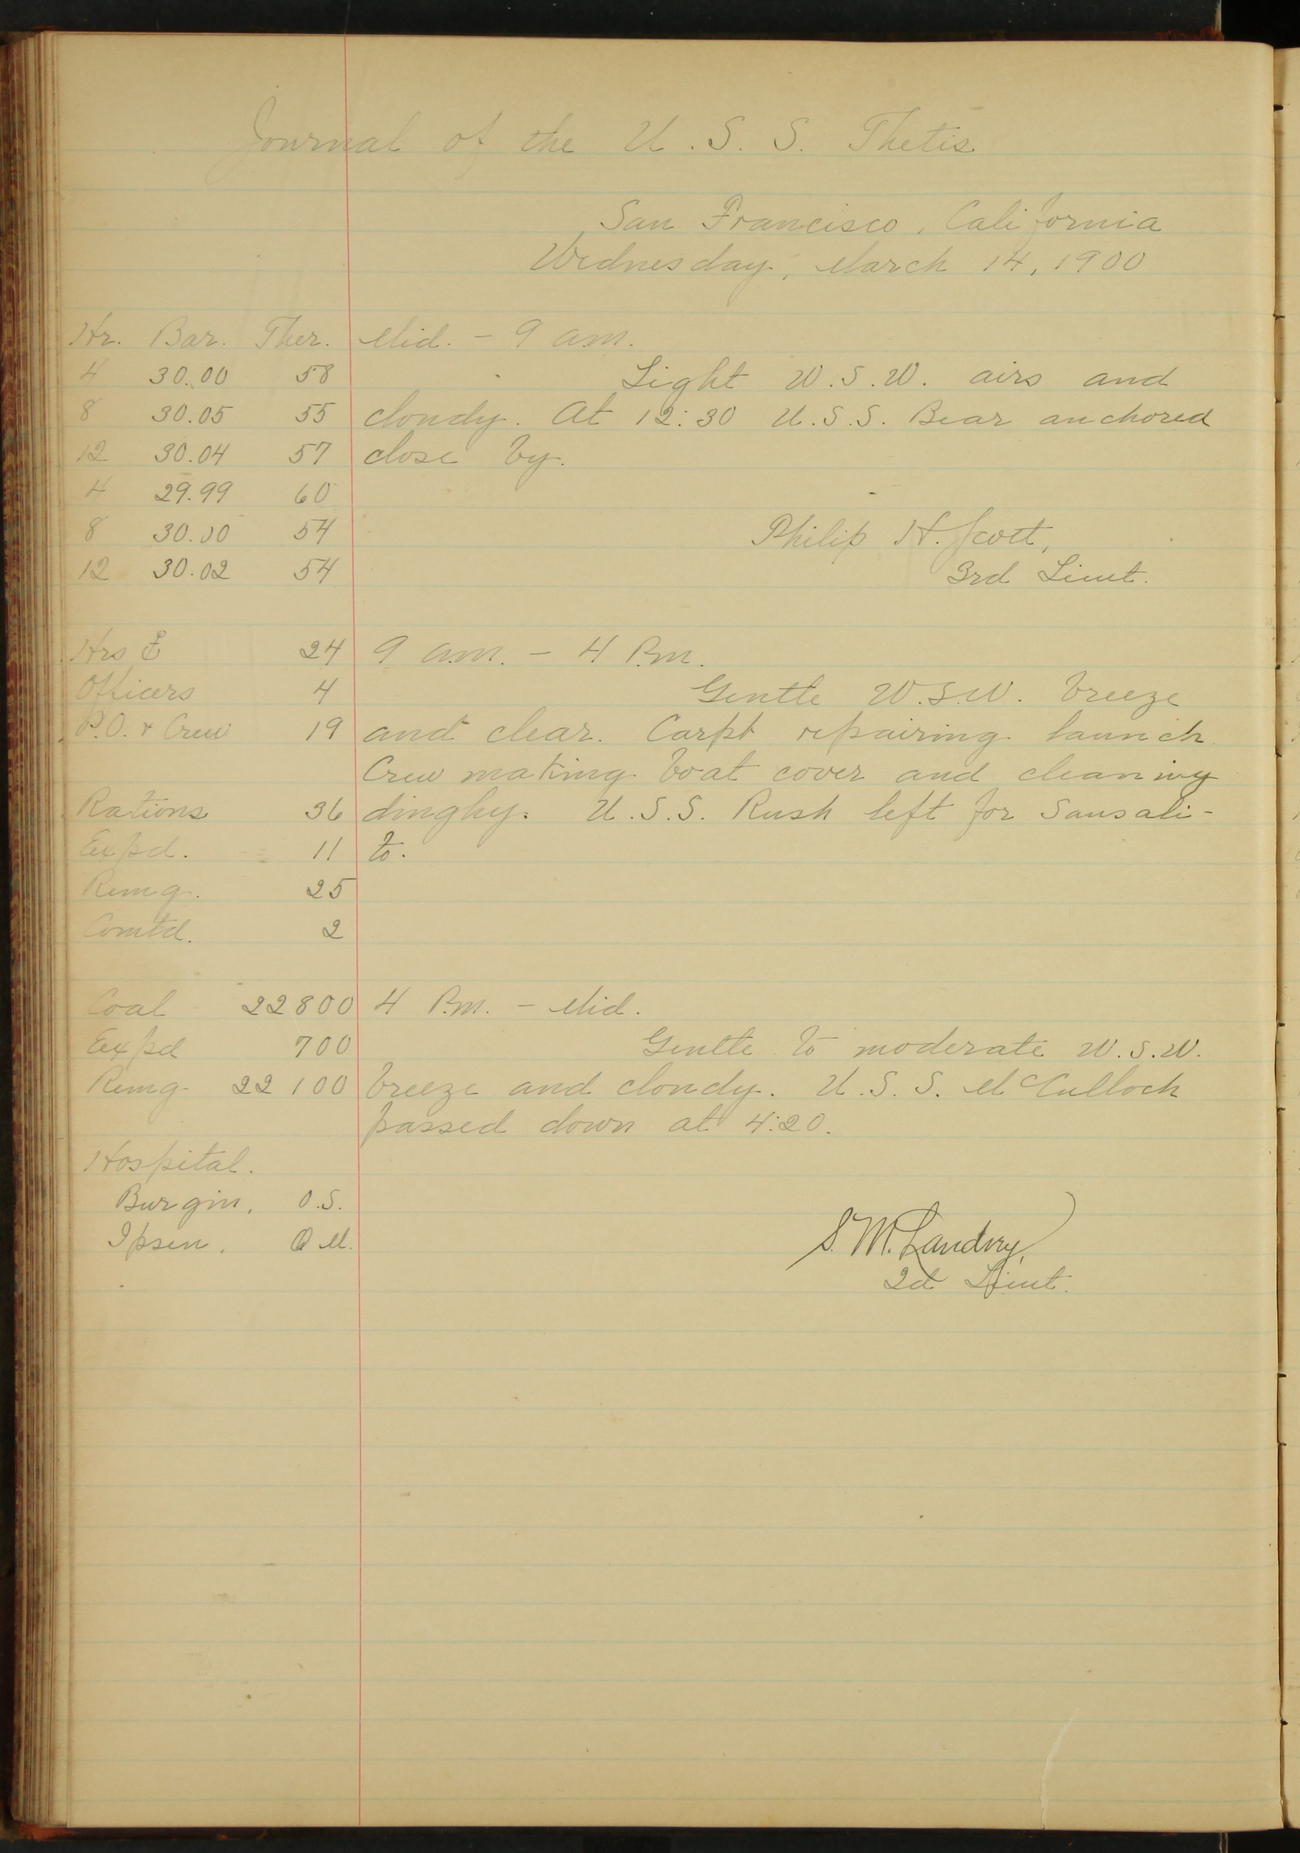 Journal of the U.S.S. Thetis
San Francisco, California
Wednesday, March 14, 1900
Hr. Bar. Ther. Mid. - 9 a.m.
4 30.00 58 Light W.S.W. airs and
8 30.05 55 cloudy. At 12:30 U.S.S. Bear anchored
12 30.04 57 close by.
4 29.99 60
8 30.00 54 Philip H. Scott,
12 30.02 54 3rd Lieut.
Hrs 24 9 a.m. - 4 P.m.
Officers 4 Gentle W.S.W. breeze
P.O. & Crew 19 and clear. Carpt repairing launch
Crew making boat cover and cleaning
Rations 36 dinghy. U.S.S. Rush left for Sausali-
Expd. 11 to.
Remg. 25
Comtd. 2
Coal 22800 4 P.m. - Mid.
Expd 700 Gentle to moderate W.S.W.
Remg 22100 breeze and cloudy. U.S.S. McCulloch
passed down at 4:20.
Hospital.
Burgin, O.S.
Ipsen, Q M. S. M. Landry,
2d Lieut.